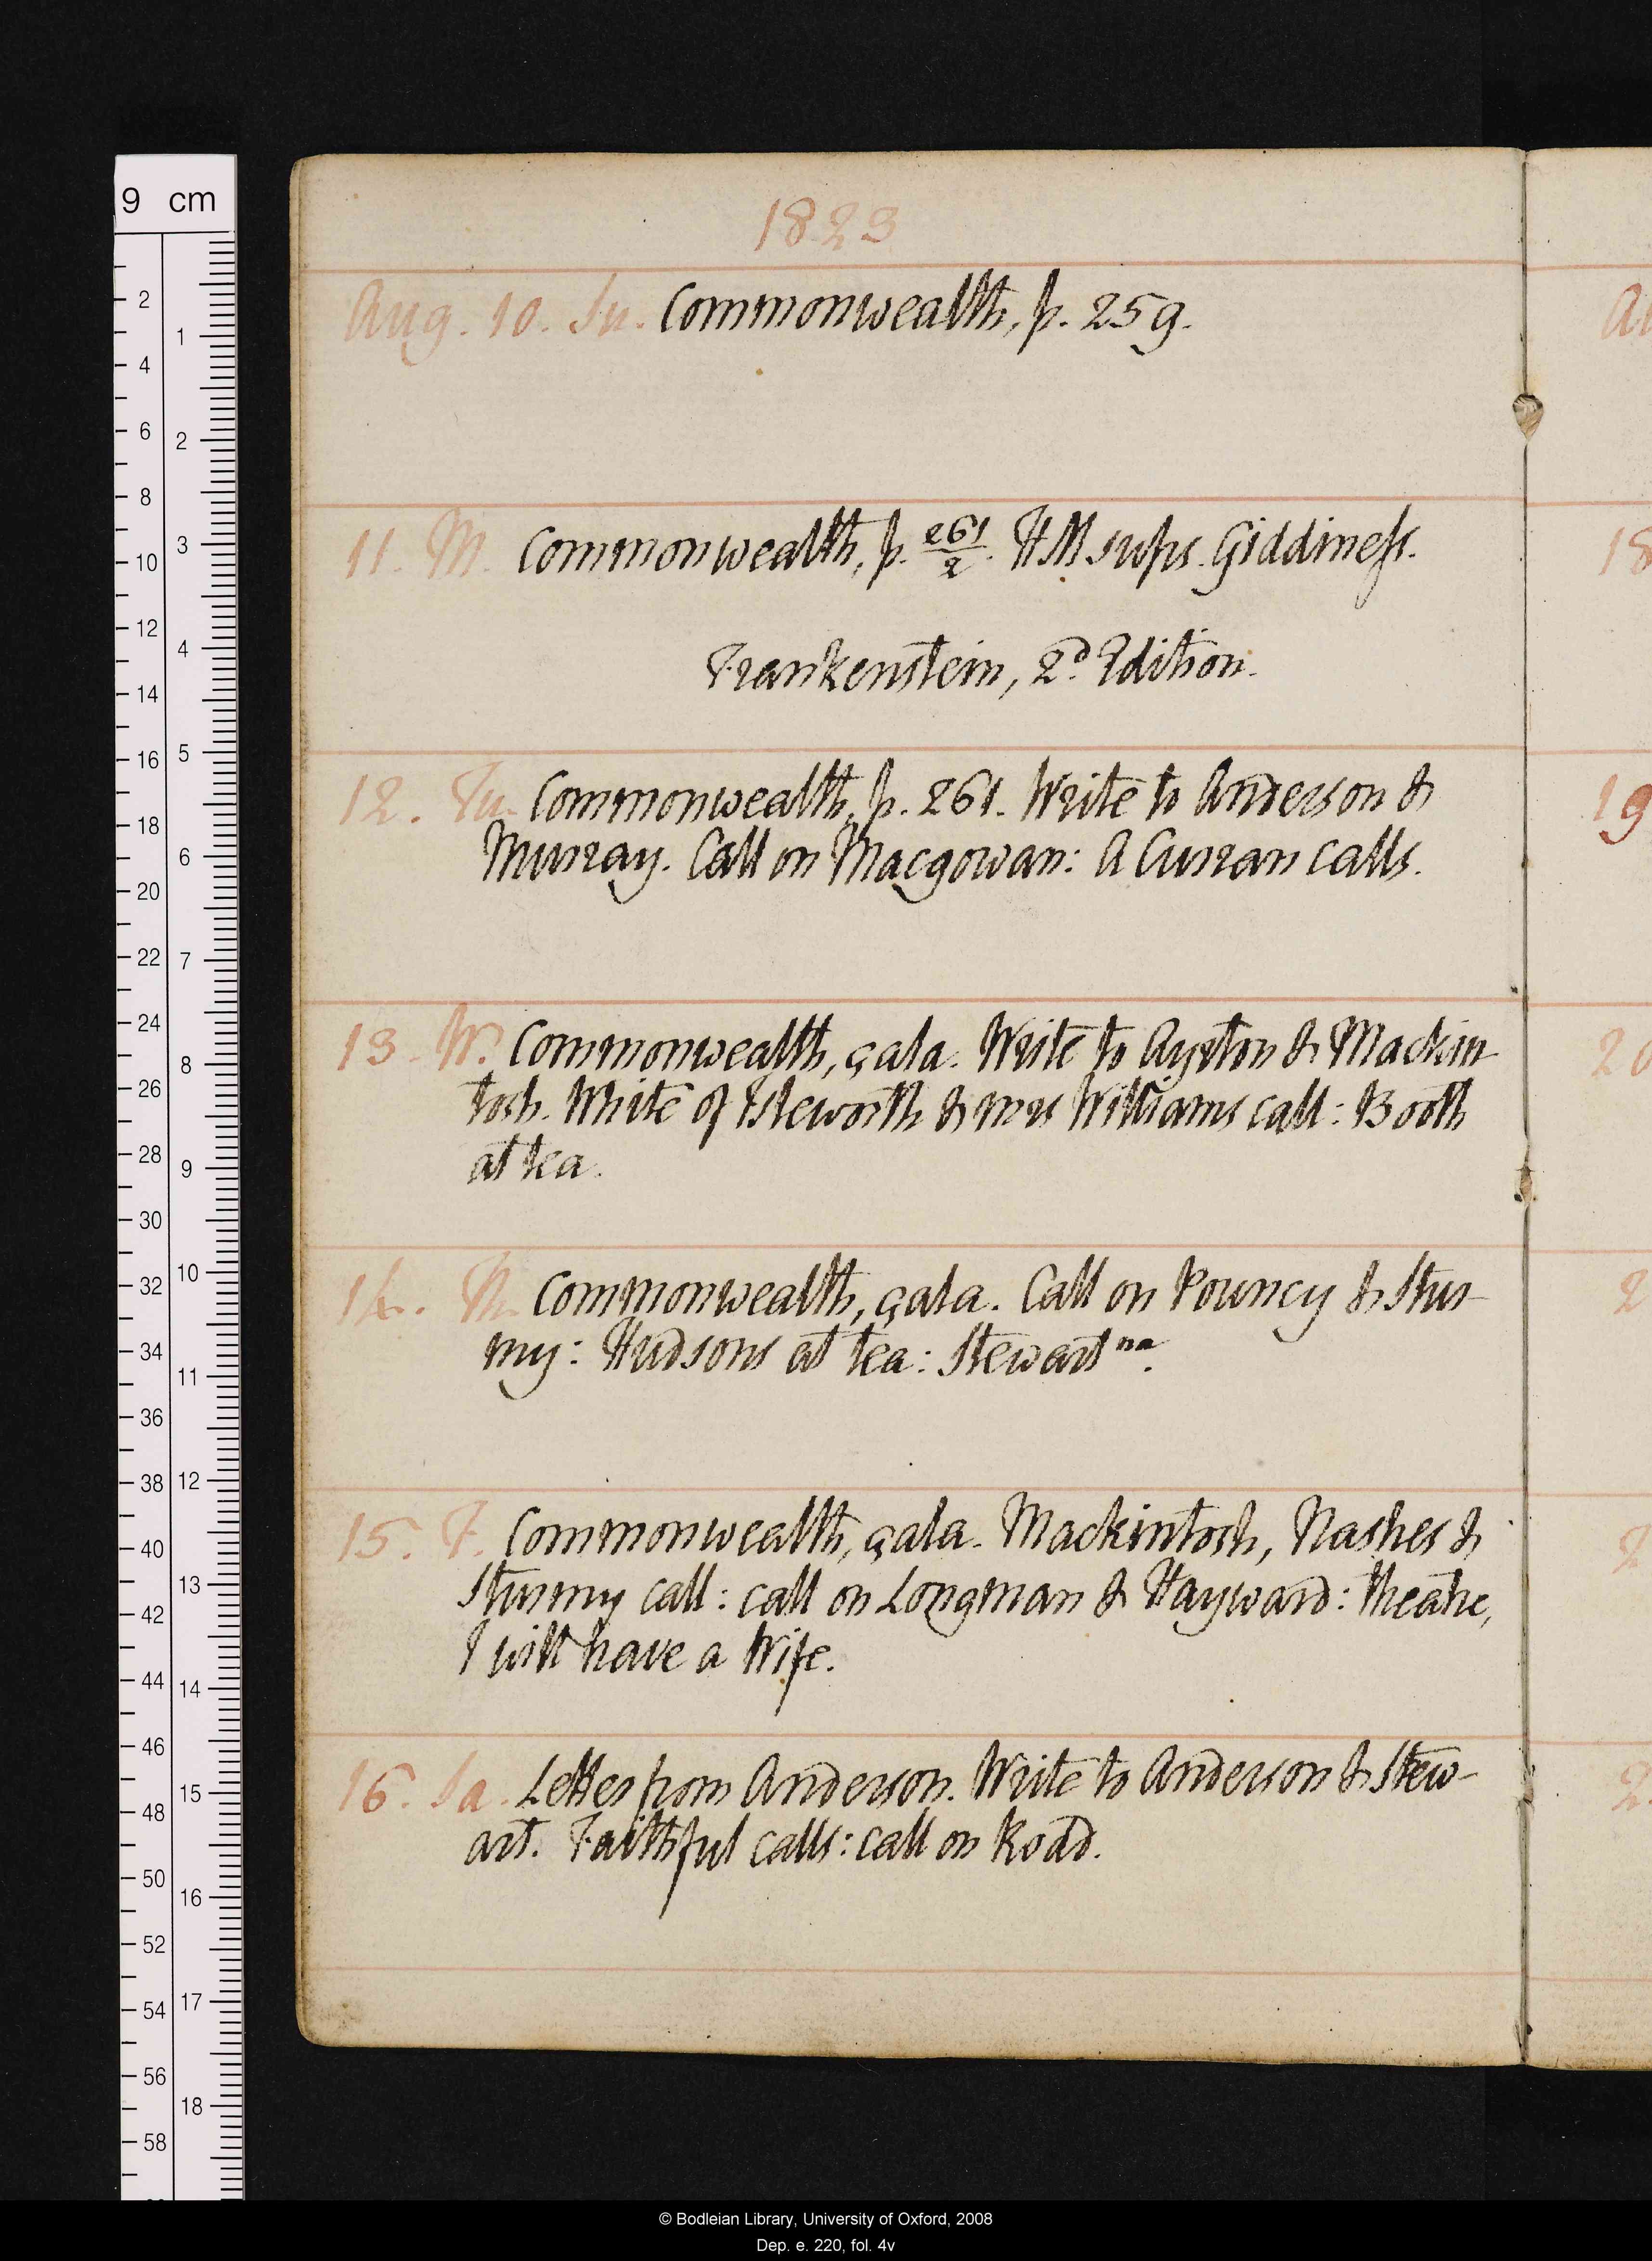 9 cm
1823
Aug. 10. Su. Commonwealth, p. 259.
11. M. Commonwealth, p. 261/2. HM sups. Giddiness.
Frankenstein, 2d Edition.
12. Tu. Commonwealth, p. 261. Write to Anderson &
Murray. Call on Macgowan: A Curran calls.
13. W. Commonwealth, çala. Write to Ayrton & Mackin-
tosh. White of Isleworth & mrs Williams call: Booth
at tea.
14. Th. Commonwealth, çala. Call on Pouncy & Stur-
my: Hudsons at tea: Stewart na.
15. F. Commonwealth, çala. Mackintosh, Nashes &
Sturmy call: call on Longman & Hayward: theatre,
I will have a Wife.
16. Sa. Letter from Anderson. Write to Anderson & Stew-
art. Faithful calls: call on Road.
© Bodleian Library, University of Oxford, 2008
Dep. e. 220, fol. 4v